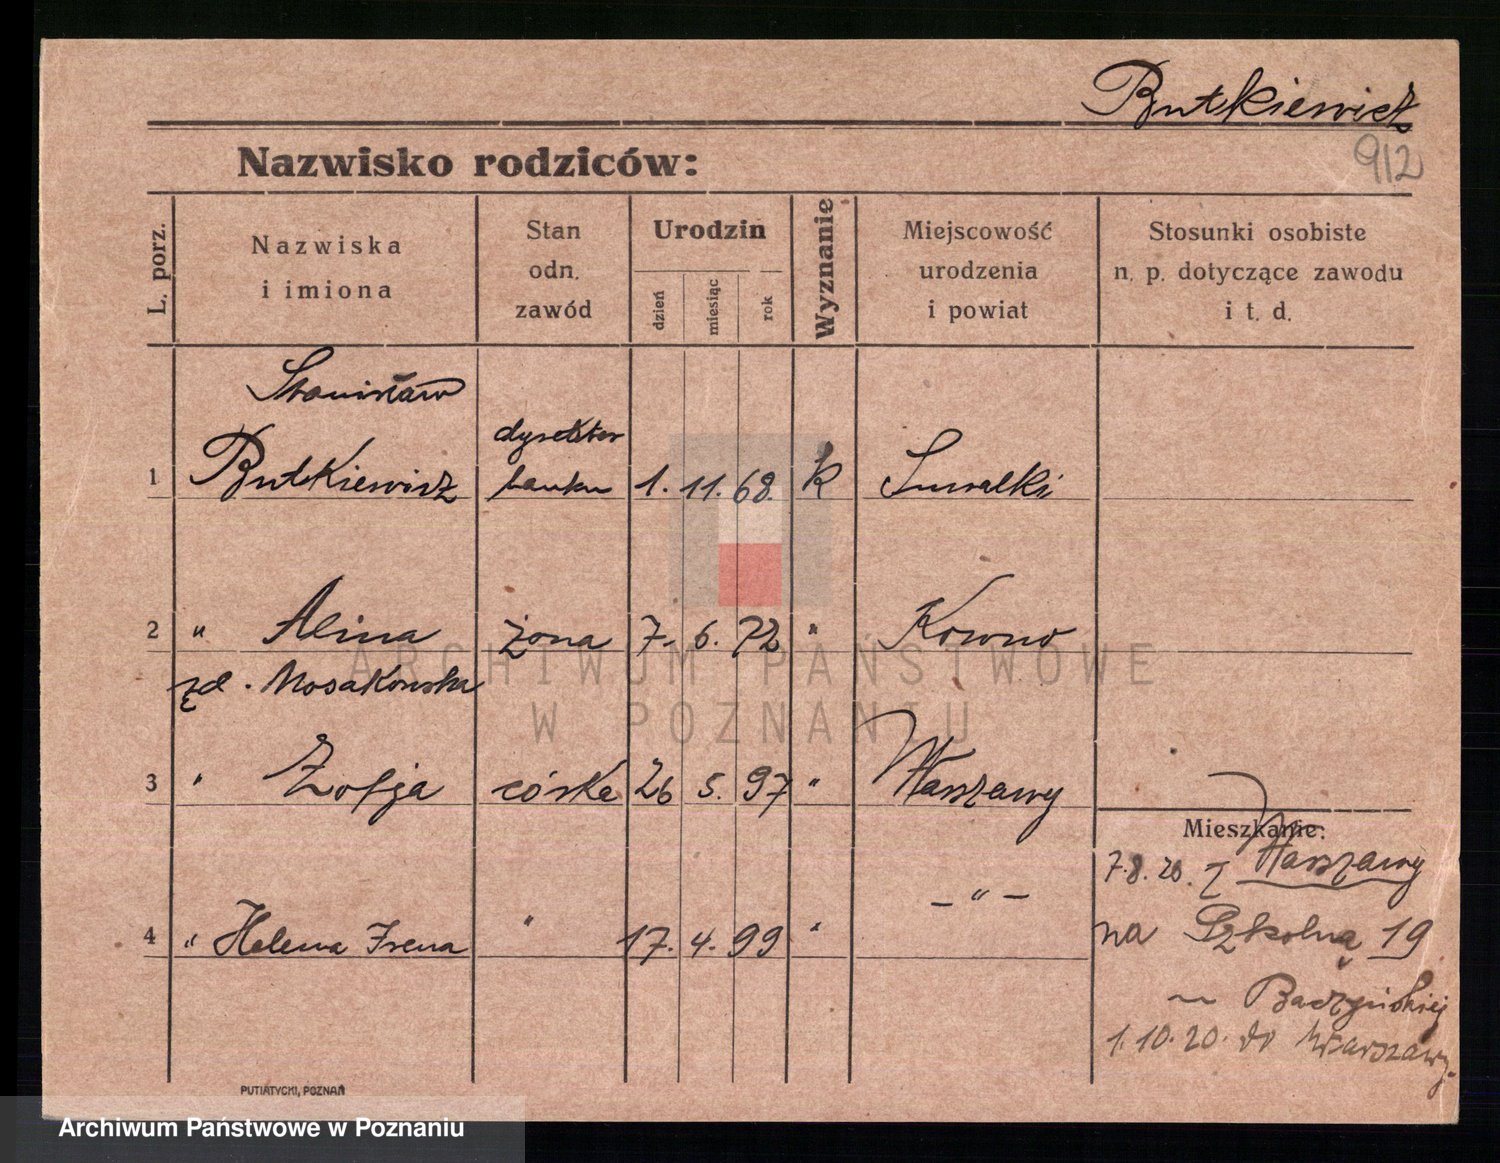 Butkiewicz
912
Nazwisko rodziców:
L. porz.
Nazwiska
i imiona
Stan
odn.
zawód
Urodzin
dzień
miesiąc
rok
Wyznanie
Miejscowość
urodzenia
i powiat
Stosunki osobiste
n. p. dotyczące zawodu
i t. d.
Stanisław
dyrektor
1 Butkiewicz banku 1. 11. 68. k Suwalki
2 " Alina żona 7. 6. 72 " Kowno
zd. Mosakowska
3 " Zofja córka 26 5. 97 " Warszawy
Mieszkanie:
7.8.20. z Warszawy
4 " Helena Irena " 17. 4. 99 " - " -
na Szkolną 19
u
1.10.20. do Warszawy.
PUTIATYCKI, POZNAŃ
ARCHIWUM PAŃSTWOWE
W POZNANIU
Archiwum Państwowe w Poznaniu